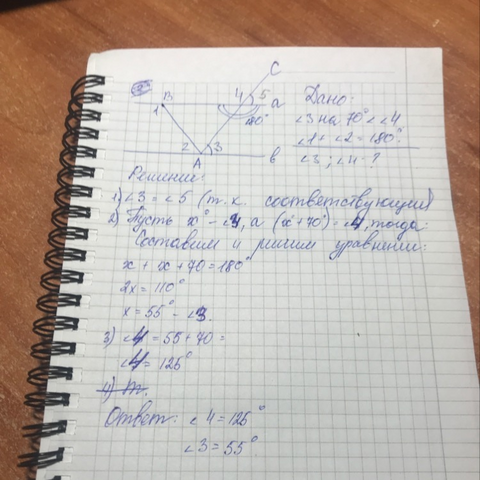 C
B
4 5 a
1
180°
2 3
A
в
Дано:
∠3 на 70° < ∠4
∠1 + ∠2 = 180°
∠3 ; ∠4 - ?
Решение:
1) ∠3 = ∠5 (т.к. соответствующие)
2) Пусть x° - ∠3, а (x+70°) = ∠4, тогда:
Составим и решим уравнение:
x + x + 70 = 180°
2x = 110°
x = 55° - ∠3.
3) ∠4 = 55 + 70 =
∠4 = 125°
4) т.
Ответ: ∠4 = 125°
∠3 = 55°.